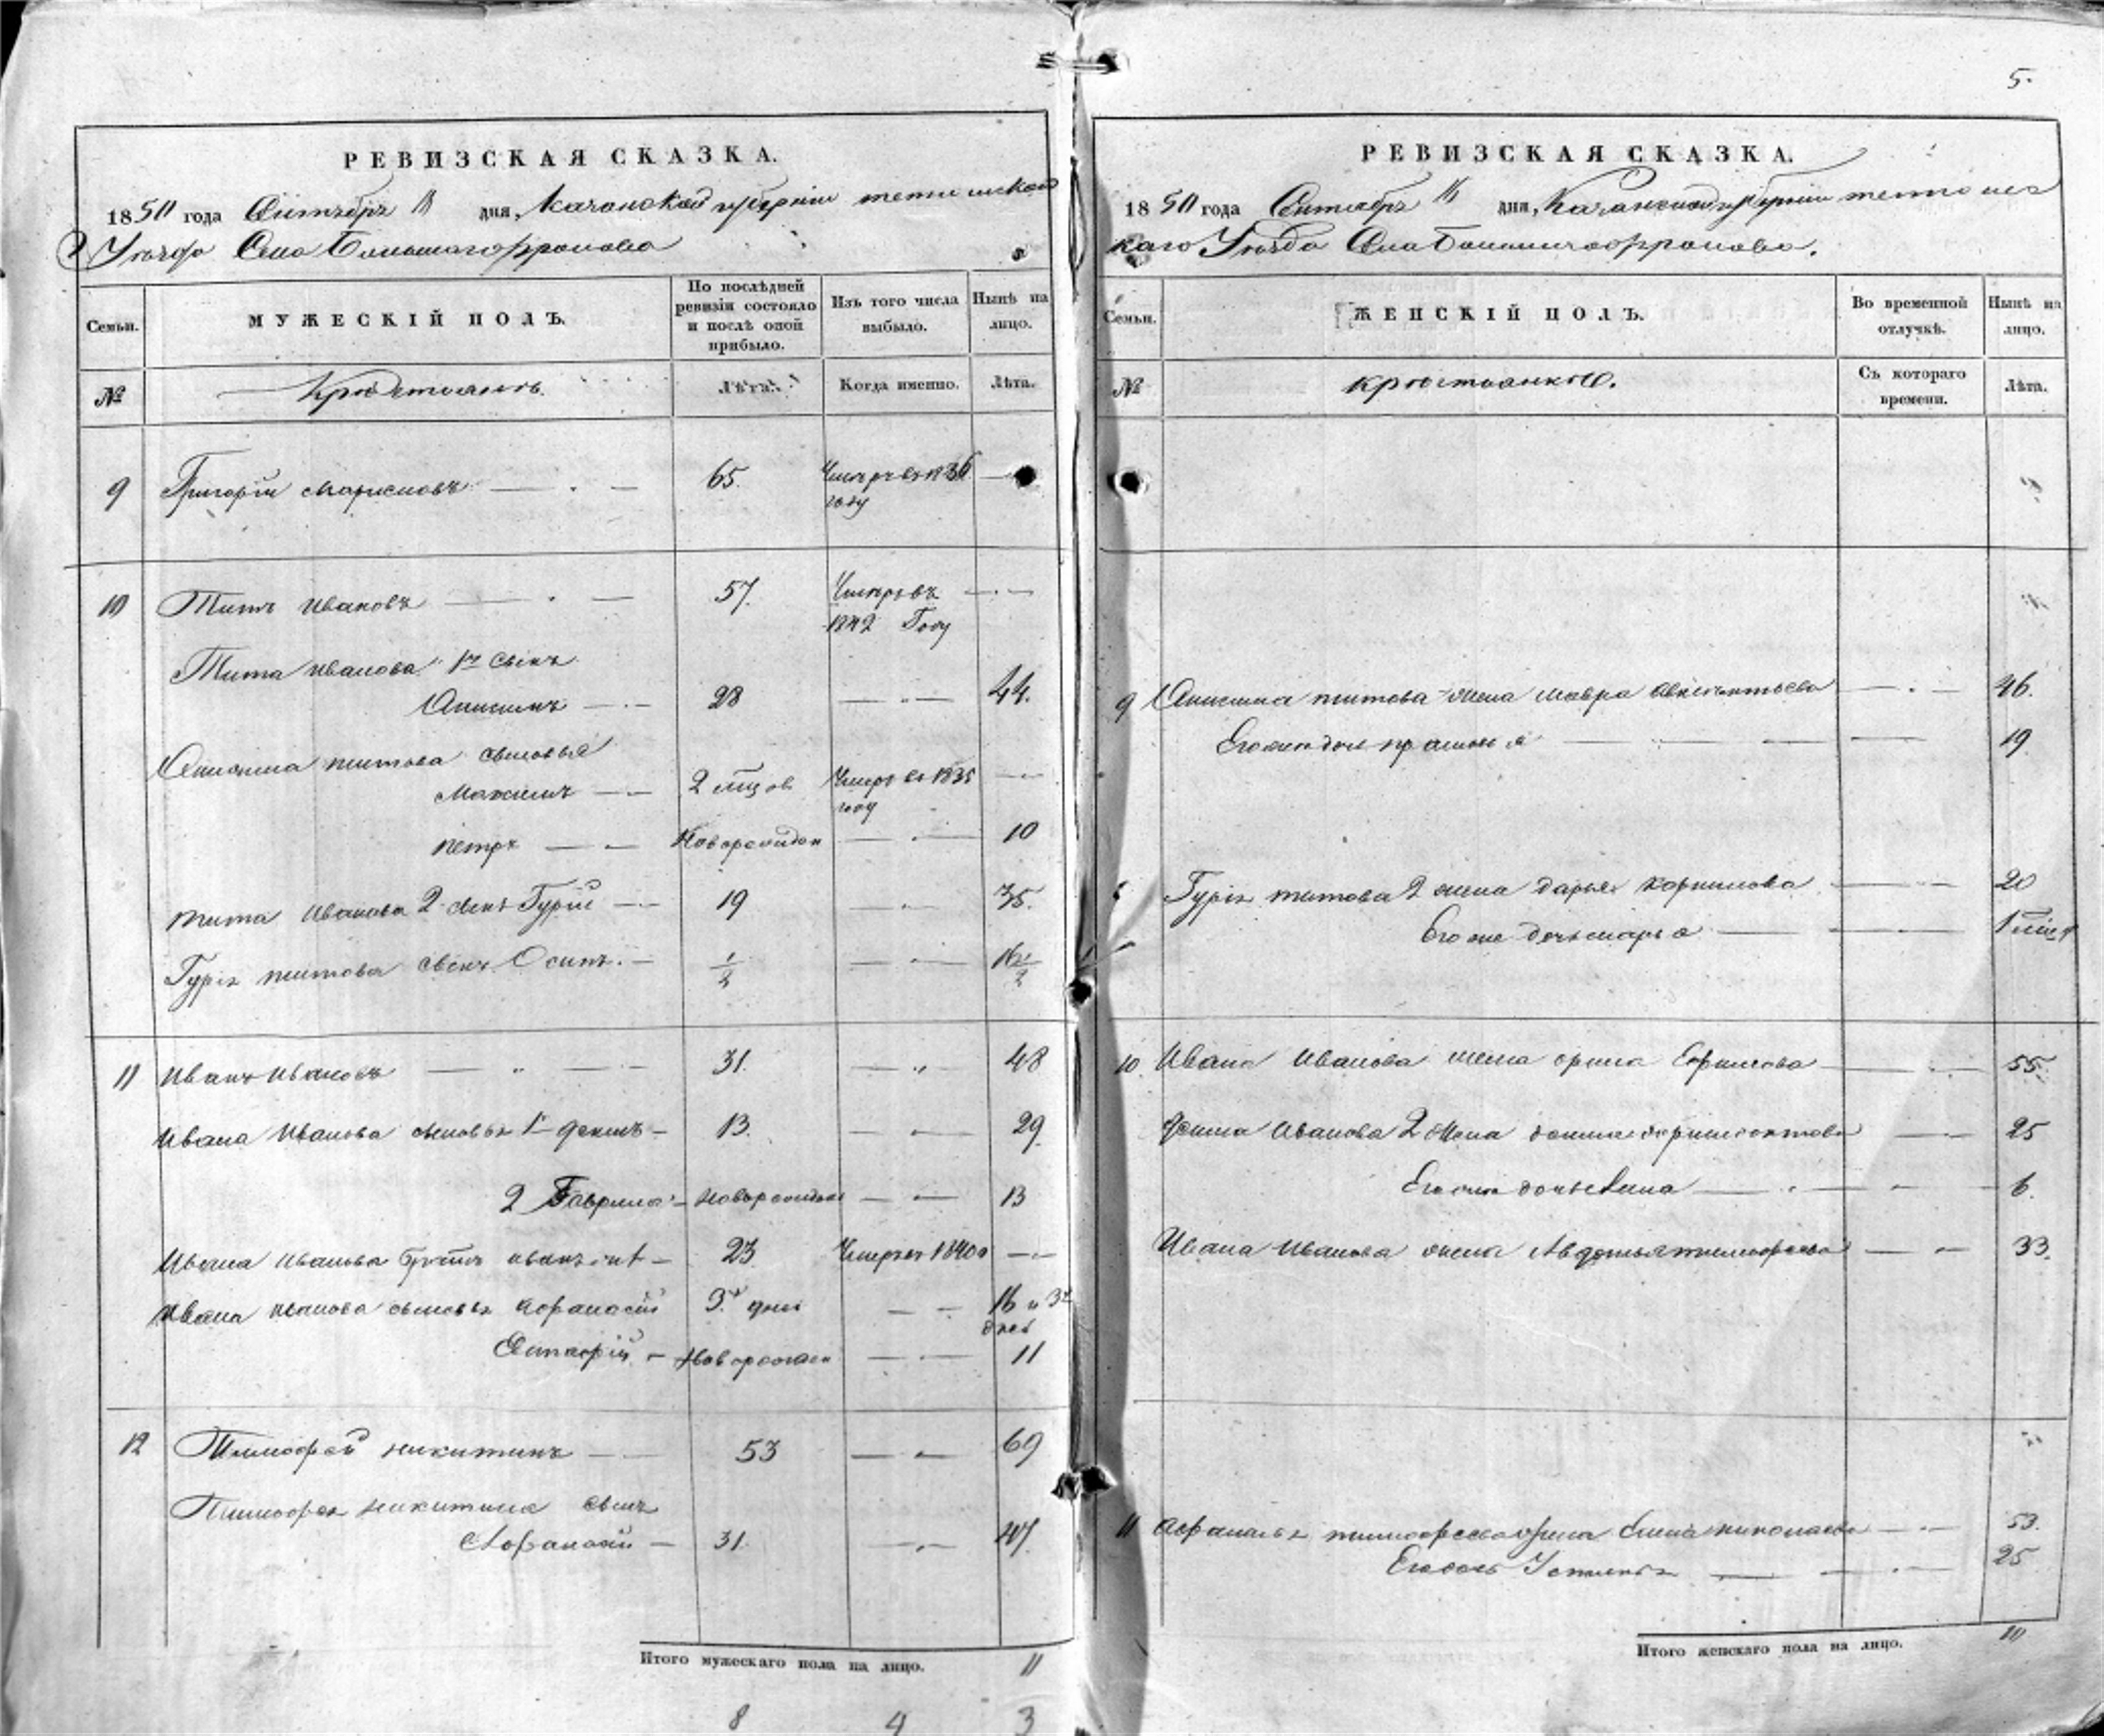 5.
РЕВИЗСКАЯ СКАЗКА.
1850 года Сентября дня, Казанской губернии тетюшскаго
Уезда Села Большаго Фролова
Семьи. МУЖЕСКІЙ ПОЛЪ. По послѣдней ревизіи состояло и послѣ оной прибыло. Изъ того числа выбыло. Нынѣ на лицо.
№ Крестьянъ. Лѣта. Когда именно. Лѣта.
9 Григорій 65. Умеръ въ 1836 году
10 Титъ Ивановъ 57. Умеръ въ 1842 Году
Тита Иванова 1й сынъ
Анисимъ 28 44.
Анисима титова сыновья
Максимъ 2 Умеръ въ 1835 году
петръ Новорожден 10
тита Иванова 2 сынъ Гурій 19 35.
Гурія титова сынъ Осипъ. 1/2 16 1/2
11 Иванъ Ивановъ 31. 48
Ивана Иванова сыновья 1й 13. 29.
2 Гаврила новорожден 13
Ивана Иванова братъ иванъ 23 Умеръ въ 1840
Ивана иванова сыновья Афанасій 3х дней 16 и 3х дней
Новорожден 11
12 Тимофей никитинъ 53 69
Тимофея никитина сынъ
Афанасій 31. 47.
Итого мужескаго пола на лицо. 11
8 4 3
РЕВИЗСКАЯ СКАЗКА.
1850 года Сентября дня, Казанской губерніи тетюшс
каго Уезда Села Большаго Фролова.
Семьи. ЖЕНСКІЙ ПОЛЪ. Во временной отлучкѣ. Нынѣ на лицо.
№ крестьянокъ. Съ котораго времени. Лѣта.
9 Анисима титова жена мавра 46.
Его дочь 19
Гурія титова 2 жена дарья корнилова 20
Его же дочь марья 1
10. Ивана Иванова жена орина Ефимова 55.
Иванова 2 жена 25
Его же дочь елена 6.
Ивана Иванова жена Авдотья тимофеева 33.
11 Афанасья тимофеева жена Елена николаева 53.
Его дочь Устинья 25
Итого женскаго пола на лицо. 10